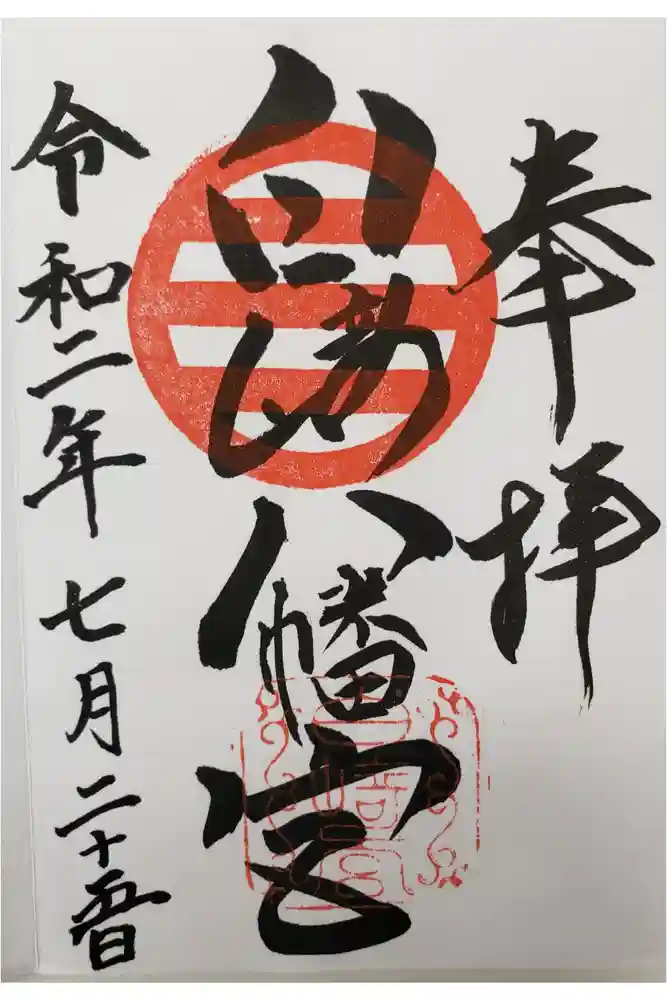 奉拝
八幡宮
令和二年七月二十五日